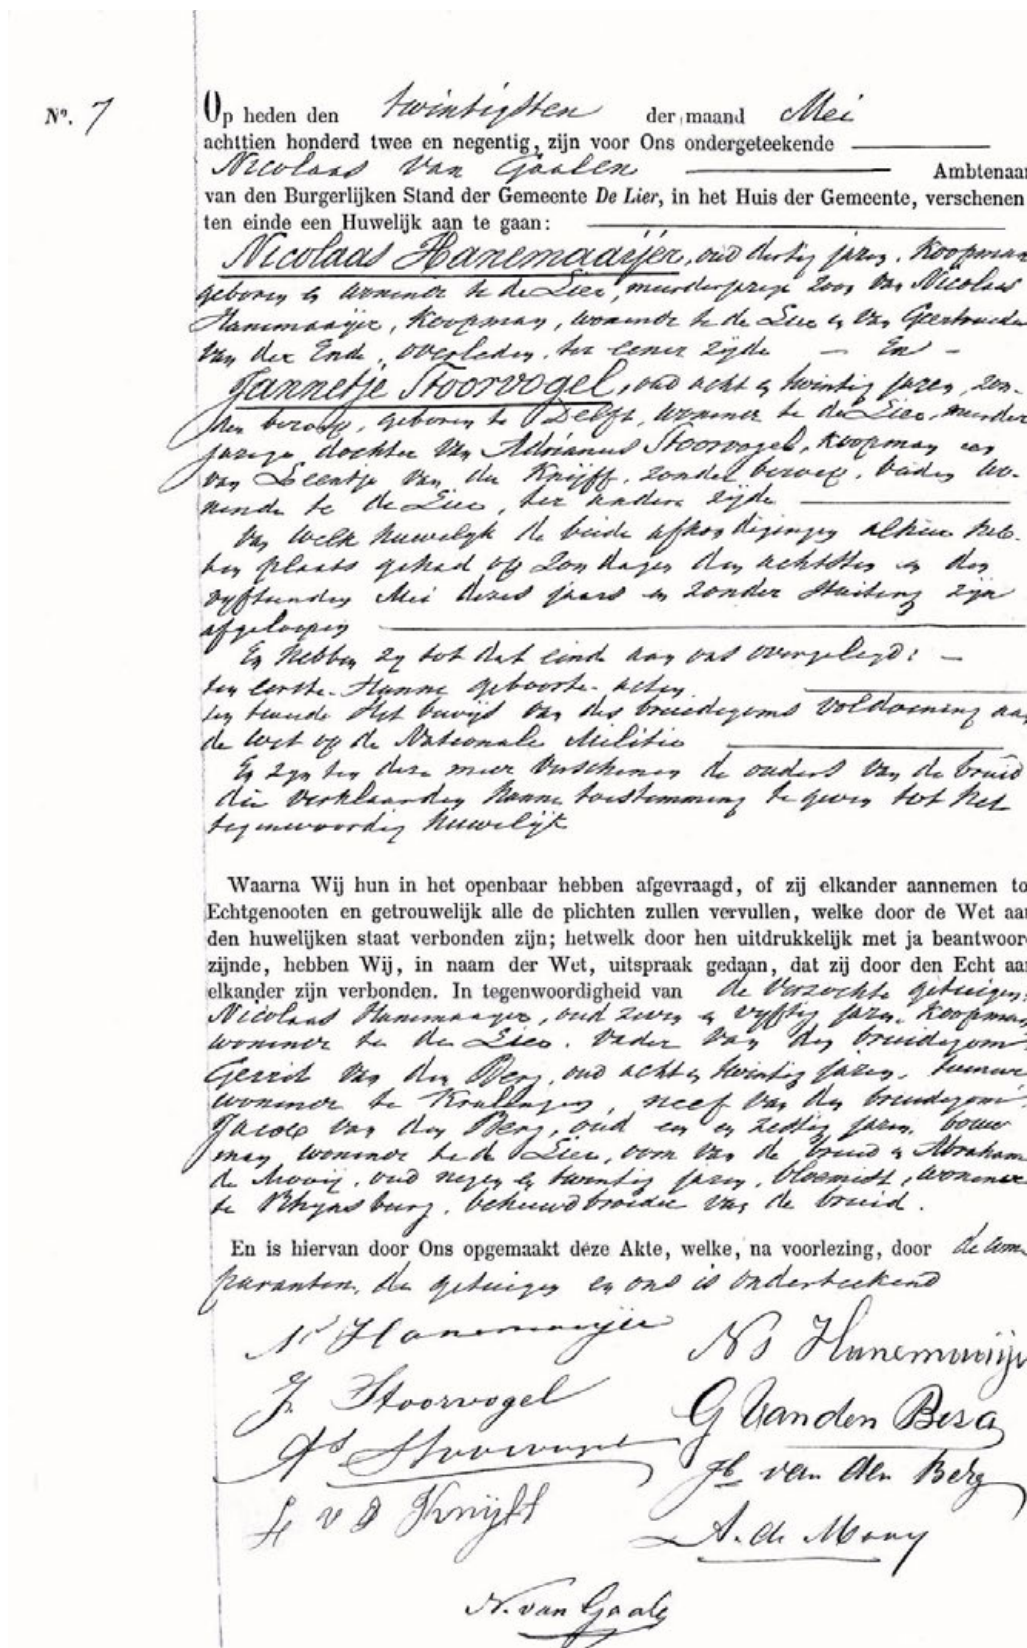 No. 7
Op heden den twintigsten der maand Mei
achttien honderd twee en negentig, zijn voor Ons ondergeteekende
Nicolaas van Gaalen Ambtenaar
van den Burgerlijken Stand der Gemeente De Lier, in het Huis der Gemeente, verschenen
ten einde een Huwelijk aan te gaan:
Nicolaas Hanemaaijer, oud dertig jaren, Koopman
geboren en wonende te de Lier, meerderjarige zoon van Nicolaas
Hanemaaijer, Koopman, wonende te de Lier en van Geertruida
van der Ende, overleden, ter eener zijde — En —
Jannetje Stoorvogel, oud acht en twintig jaren, zon-
der beroep, geboren te Delft, wonende te de Lier, meerder
jarige dochter van Adrianus Stoorvogel, Koopman en
van Leentje van der Knijff, zonder beroep, beiden wo-
nende te de Lier, ter andere zijde
Van welk huwelijk de beide afkondigingen alhier heb-
ben plaats gehad op Zondagen den achtsten en den
vyftienden Mei dezes jaars en zonder stuiting zijn
afgeloopen
En hebben zy tot dat einde aan ons overgelegd: —
ten eerste Hunne geboorte-acten
ten tweede Het bewijs van des bruidegoms voldoening aan
de wet op de Nationale Militie
En zyn ten deze mede verschenen de ouders van de bruid
die verklaarden hunne toestemming te geven tot het
tegenwoordig huwelijk
Waarna Wij hun in het openbaar hebben afgevraagd, of zij elkander aannemen to
Echtgenooten en getrouwelijk alle de plichten zullen vervullen, welke door de Wet aan
den huwelijken staat verbonden zijn; hetwelk door hen uitdrukkelijk met ja beantwoor
zijnde, hebben Wij, in naam der Wet, uitspraak gedaan, dat zij door den Echt aan
elkander zijn verbonden. In tegenwoordigheid van de verzochte getuigen:
Nicolaas Hanemaayer, oud zeven en vyftig jaren, Koopman
wonende te de Lier, vader van den bruidegom
Gerrit van den Berg, oud acht en twintig jaren, tuinier
wonende te Kralingen, neef van den bruidegom
Jacob van den Berg, oud een en zestig jaren, bouw
man wonende te de Lier, oom van de bruid en Abraham
de Mooij, oud negen en twintig jaren, bloemist, wonende
te Rhynsburg, behuwdbroeder van de bruid.
En is hiervan door Ons opgemaakt deze Akte, welke, na voorlezing, door de com
paranten, de getuigen en ons is onderteekend
N Hanemaaijer Ns Hanemaaije
J. Stoorvogel G Van den Berg
As Stoorvogel Jb van den Berg
L v d Knijff A. de Mooy
N. van Gaalen